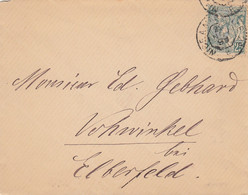 Monsieur Ed. Gebhard
Vohwinkel
bei
Elberfeld.